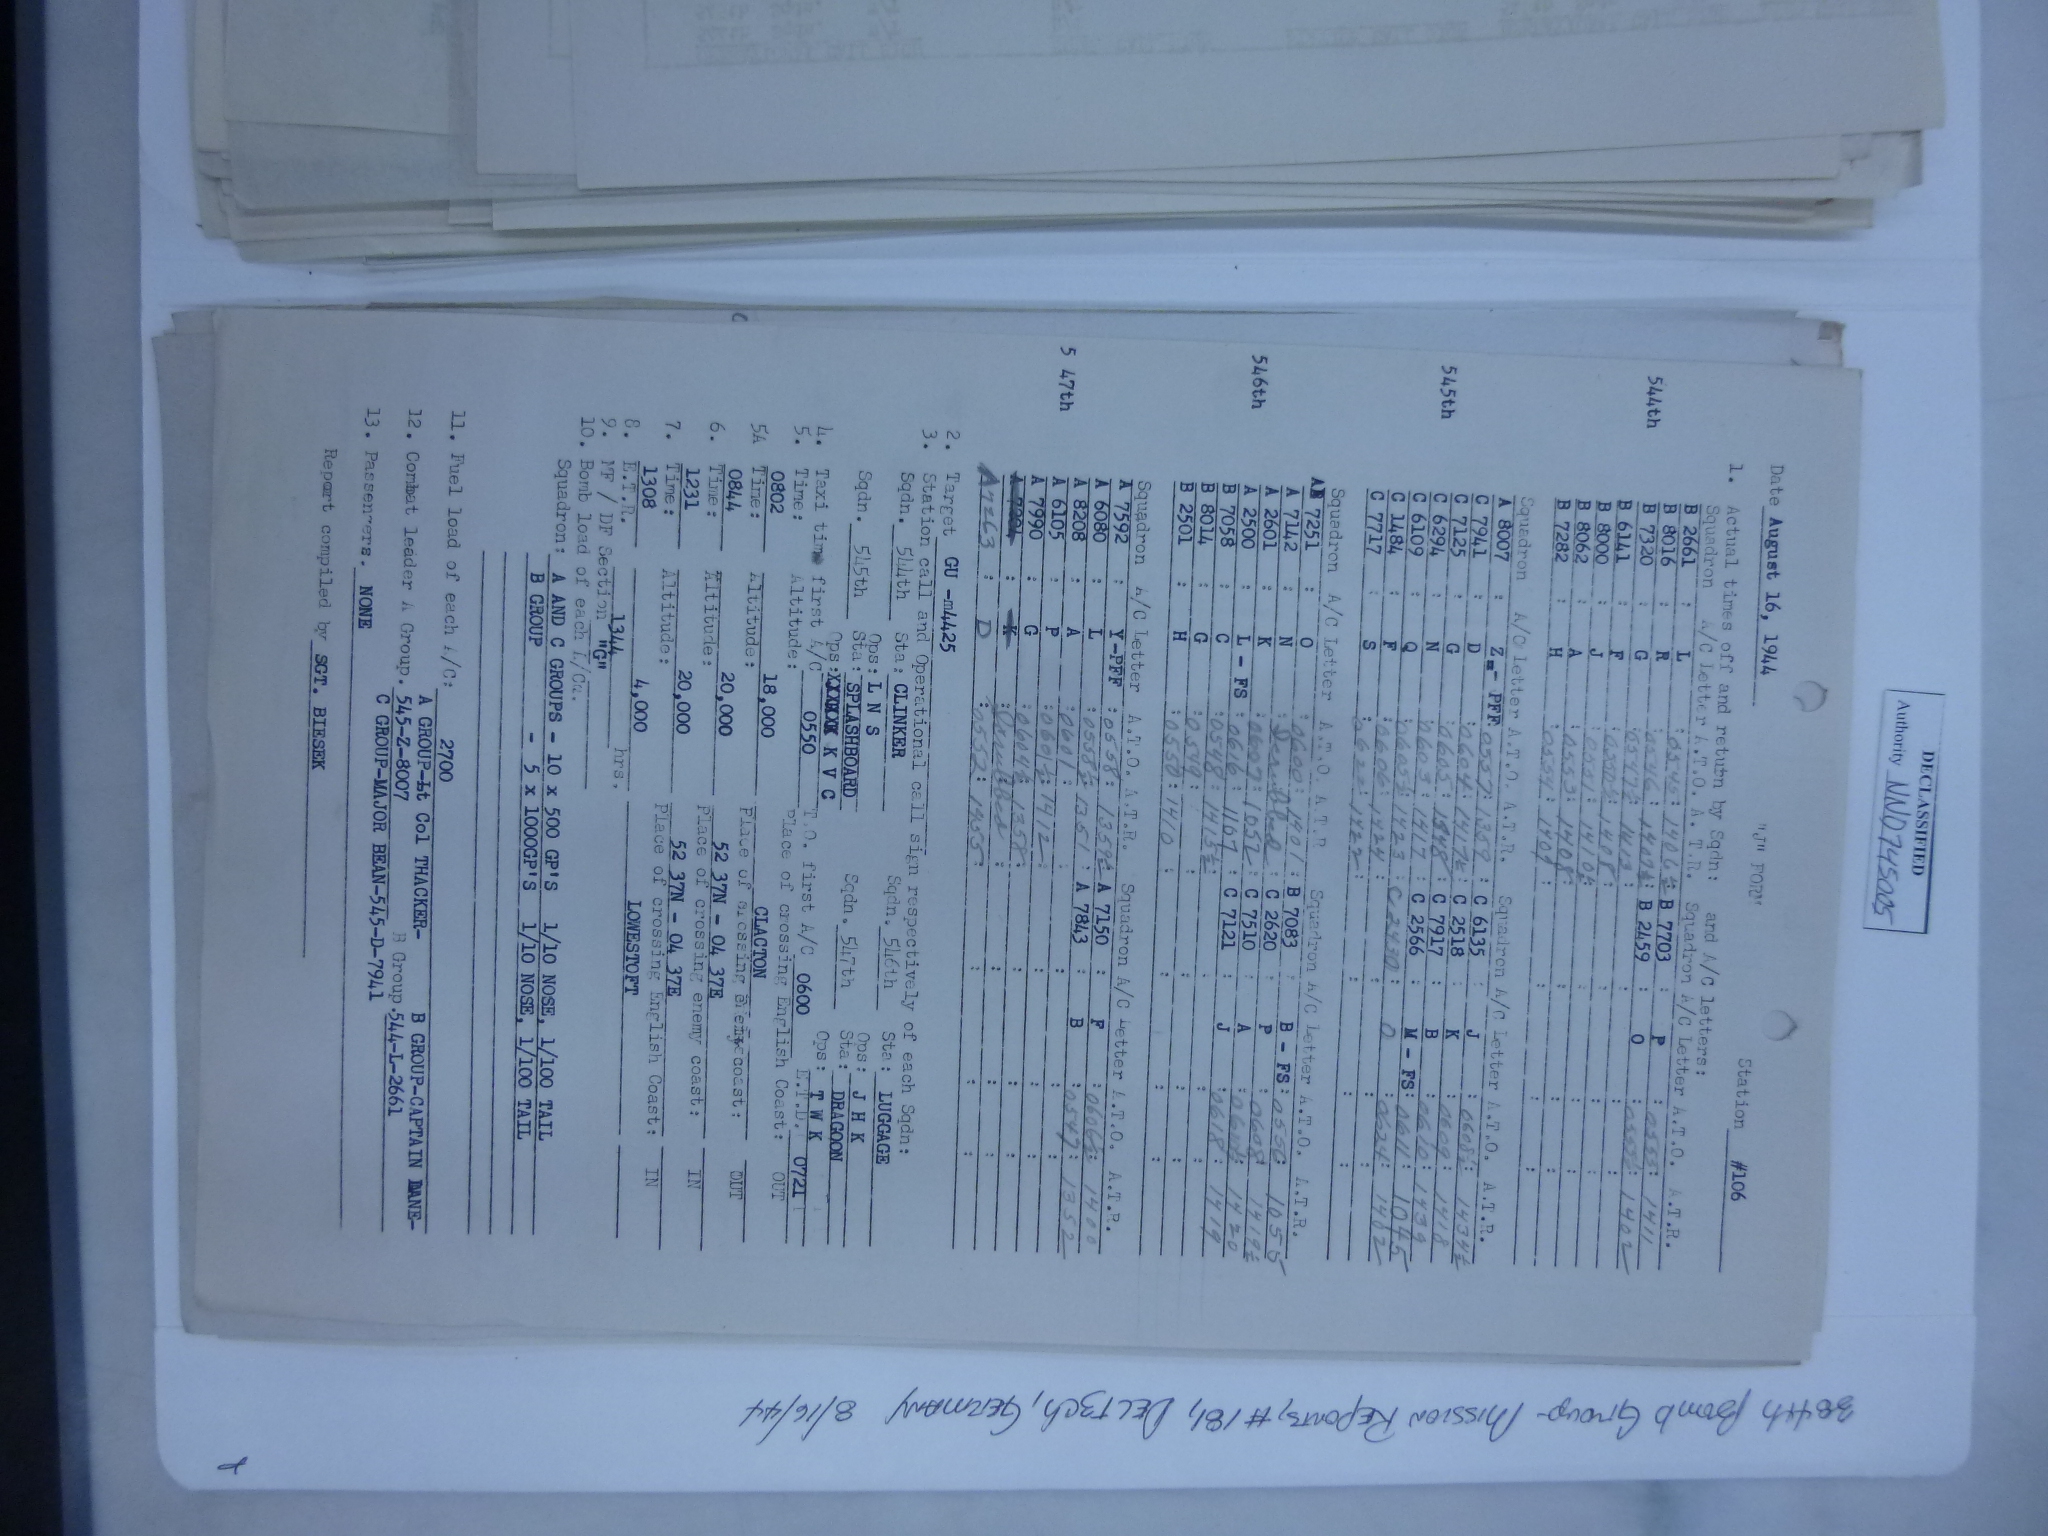 DECLASSIFIED
Authority NND745005
"J" FORM
Date August 16, 1944 Station #106
1. Actual times off and return by Sqdn: and A/C letters:
Squadron A/C Letter A.T.O. A.T.R. Squadron A/C Letter A.T.O. A.T.R.
544th
B 2661 : L : 0545 : 1406½ : B 7703 : P : 0555 : 1411
B 8016 : R : 0546 : : B 2459 : O : : 1402
B 7320 : G
B 6141 : F
B 8000 : J : 0551 : 1410
B 8062 : A : 0553 : 1408
B 7282 : H : 0554 : 1409
Squadron A/C letter A.T.O. A.T.R. Squadron A/C Letter A.T.O. A.T.R.
545th
A 8007 : Z - PFF : 0557 : 1359 : C 6135 : J : 0608½ : 1434½
C 7941 : D : 0604 : 1417½ : C 2518 : K : 0609 : 1418
C 7125 : G : 0605 : : C 7917 : B : 0610 : 1439
C 6294 : N : : 1417 : C 2566 : M - FS : 0611 : 1045
C 6109 : Q : 0605½ : 1423 : C 2430 : O : 0624 : 1402
C 1484 : F : 0606 : 1424
C 7717 : S : 0622 : 1422
Squadron A/C Letter A.T.O. A.T.R. Squadron A/C Letter A.T.O. A.T.R.
546th
AB 7251 : O : 0600 : 1401 : B 7083 : B - FS : 0556 : 1055
A 7142 : N : : C 2620 : P : 0608 : 1419½
A 2601 : K : 0607 : 1052 : C 7510 : A : : 1420
A 2500 : L - FS : 0616 : : C 7121 : J : 0618 : 1419
B 7058 : C : 0548 : 1413½
B 8014 : G : 0549
B 2501 : H : 0550 : 1410
Squadron A/C Letter A.T.O. A.T.R. Squadron A/C Letter A.T.O. A.T.R.
5 47th
A 7592 : Y-PFF : 0558 : 1359½ : A 7150 : F : : 1400
A 6080 : L : 0558½ : 1351 : A 7843 : B : 0547 : 1352
A 8208 : A : 0601
A 6105 : P : 0601½ : 1412
A 7990 : G : 0604½ : 1358
K
A 7263 : D : 0552 : 1355
2. Target GU -m4425
3. Station call and Operational call sign respectively of each Sqdn:
Sqdn. 544th Sta: CLINKER Sqdn. 546th Sta: LUGGAGE
Ops: L N S Ops: J H K
Sqdn. 545th Sta: SPLASHBOARD Sqdn. 547th Sta: DRAGOON
Ops: XXXXX K V C Ops: T W K
4. Taxi time first A/C 0550 T.O. first A/C 0600 E.T.D. 0721
5. Time: Altitude: Place of crossing English Coast: OUT
0802 18,000 CLACTON
5A Time: Altitude: Place of crossing enemy coast: OUT
0844 20,000 52 37N - 04 37E
6. Time: Altitude: Place of crossing enemy coast: IN
1231 20,000 52 37N - 04 37E
7. Time: Altitude: Place of crossing English Coast: IN
1308 4,000 LOWESTOFT
8. E.T.R. 1344 hrs.
9. MF / DF Section "G"
10. Bomb load of each A/Cu.
Squadron: A AND C GROUPS - 10 x 500 GP'S 1/10 NOSE, 1/100 TAIL
B GROUP - 5 x 1000GP'S 1/10 NOSE, 1/100 TAIL
11. Fuel load of each A/C: 2700
A GROUP-Lt Col THACKER- B GROUP-CAPTAIN DANE-
12. Combat leader A Group. 545-Z-8007 B Group. 544-L-2661
C GROUP-MAJOR BEAN-545-D-7941
13. Passengers. NONE
Report compiled by SGT. BIESEK
384th Bomb Group - Mission Reports, #181, Delitzch, Germany 8/16/44